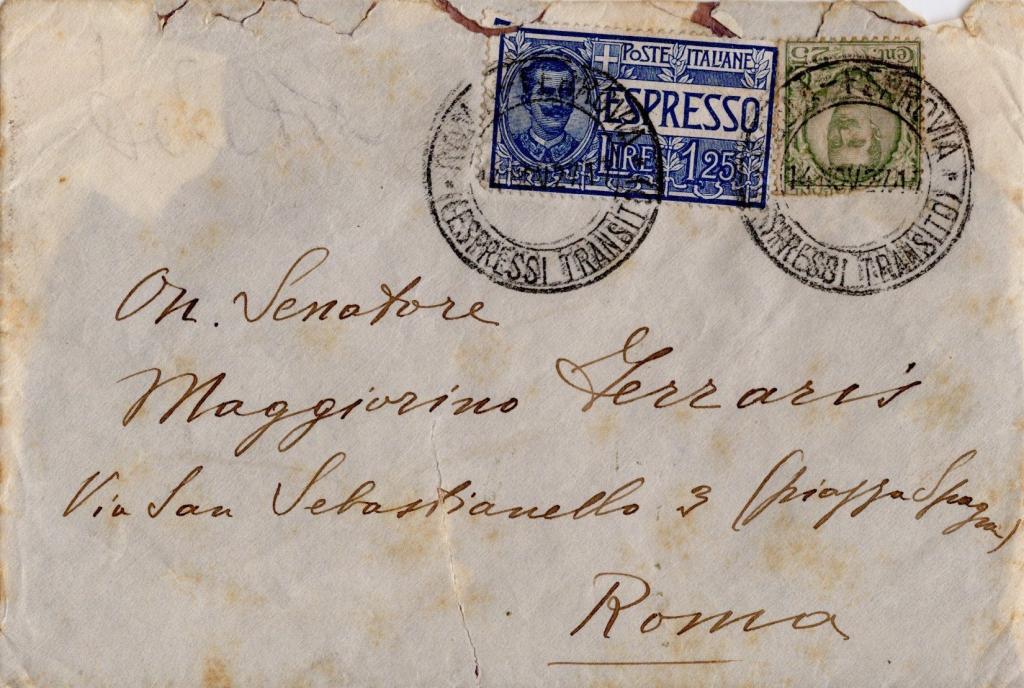 POSTE ITALIANE
ESPRESSO
LIRE 1,25
Cent. 25
FERROVIA
(ESPRESSI TRANSITO)
FERROVIA
14 NOV 27
(ESPRESSI TRANSITO)
On. Senatore
Maggiorino Ferraris
Via San Sebastianello 3 (piazza Spagna)
Roma